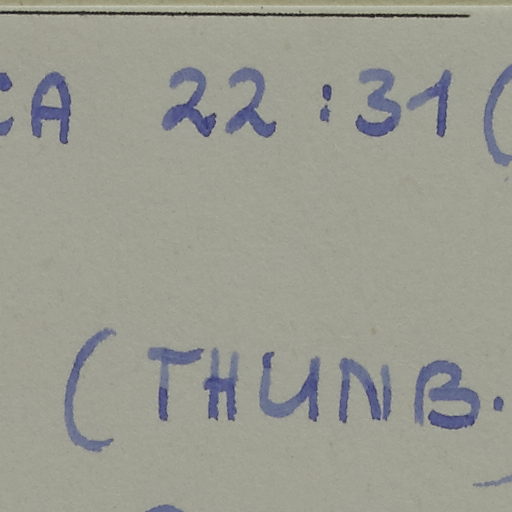 CA 22:31 (
(THUNB.